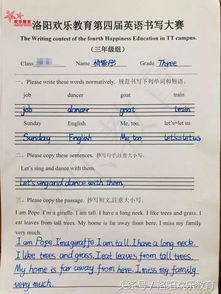 洛阳欢乐教育第四届英语书写大赛
The Writing contest of the fourth Happiness Education in TT campus.
(三年级组)
Class Name Grade Three
一、Please write these words normatively. 规范书写下列单词和短语。
job dancer goat train
job dancer goat train
Sunday English Me, too. let's=let us
Sunday English Me, too. let's=let us
二、Please copy these sentences. 抄写句子,注意大小写。
Let's sing and dance with them.
Let's sing and dance with them.
三、Please copy the passage. 抄写短文,注意大小写。
I am Pope. I'm a giraffe. I am tall. I have a long neck. I like trees and grass. I
eat leaves from tall trees. My home is far away from here. I miss my family
very much.
I am Pope. I'm a giraffe. I am tall. I have a long neck.
I like trees and grass. I eat leaves from tall trees.
My home is far away from here. I miss my family
very much.
头条号/洛阳欢乐教育